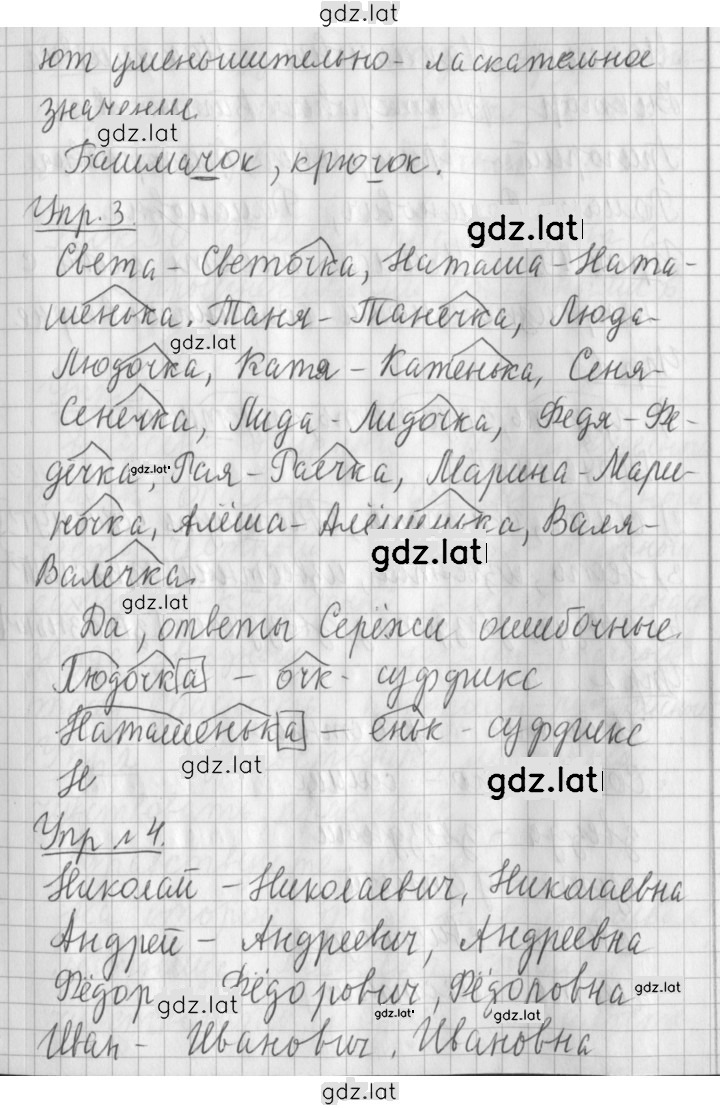 gdz.lat
ют уменьшительно-ласкательное
значение
gdz.lat
Башмачок, крючок.
Упр. 3.
gdz.lat
Света - Светочка, Наташа - Ната-
шенька. Таня - Танечка, Люда-
gdz.lat
Людочка, Катя - Катенька, Сеня-
Сенечка, Лида - Лидочка, Федя - Фе-
дечка, Рая - Раечка, Марина - Мари-
gdz.lat
ночка, Алёша - Алёшенька, Валя-
gdz.lat
Валечка.
gdz.lat
Да, ответы Серёжи ошибочные.
Людочка - очк - суффикс
Наташенька - еньк - суффикс
gdz.lat
Н
gdz.lat
Упр № 4.
Николай - Николаевич, Николаевна
Андрей - Андреевич, Андреевна
Фёдор Фёдорович, Фёдоровна
gdz.lat
gdz.lat
gdz.lat
gdz.lat
Иван - Иванович, Ивановна
gdz.lat